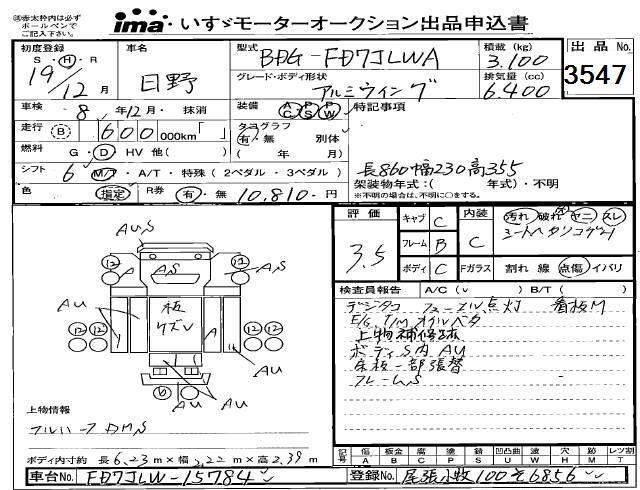 ※赤太枠内は必ず
ボールペンで
ご記入下さい。
ima いすゞモーターオークション出品申込書
初度登録 車名 型式 BDG-FD7JLWA 積載(kg) 3,100 出品No.
S・H・R 19/12月 日野 グレード・ボディ形状 アルミウイング 排気量(cc) 6,400 3547
車検 8年12月・抹消 装備 AC PS PW 特記事項
走行 B 600 000km「 」 タコグラフ 有・無 別体
燃料 G・D・HV 他( ) ( 年 月)
シフト 6 M/T・A/T・特殊(2ペダル・3ペダル) 長860幅230高355
色 指定 R券 有・無 10,810-円 架装物年式:( 年式)・不明
※不明の場合は、不明に○をする。
評価 3.5 キャブ C 内装 C 汚れ 破れ ヤニ スレ
フレーム B
ボディ C Fガラス 割れ 線 点傷 イバリ
検査員報告 A/C(v ) B/T( )
デジタコ フューエル点灯 看板M
E/G T/M オイルベタ
上物補修跡
ボディS内AU
床板一部張替
フレームS
AU,S
12 12
AS AS
AU 板 A AU
12 12 12 12
AU
AU AU
上物情報
フルハーフ DMS
ボディ内寸約 長6.23m×幅2.22m×高2.39m
記号 傷 A 板金 B 腐 C 塗 P 錆 S 凹凸曲 U 波 W 穴 H 跡 M レツ割 T
車台No. FD7JLW-15784 登録No. 尾張小牧100そ6856